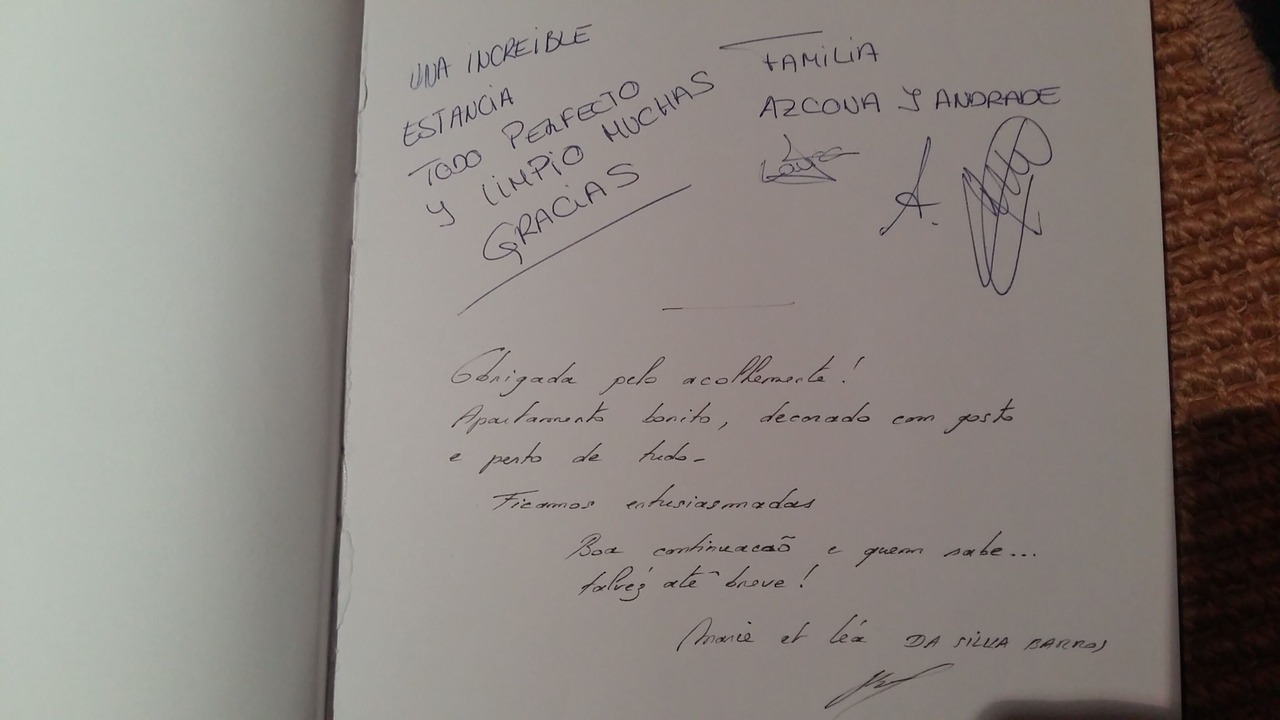 UNA INCREIBLE
ESTANCIA
TODO PERFECTO
Y LIMPIO MUCHAS
GRACIAS
FAMILIA
AZCONA Y ANDRADE
A.
Obrigada pelo acolhemente!
Apartamento bonito, decorado com gosto
e perto de tudo-
Ficamos entusiasmadas
Boa continuacaõ e quem sabe...
talvéz até breve!
Marie et léa DA SILVA BARROS